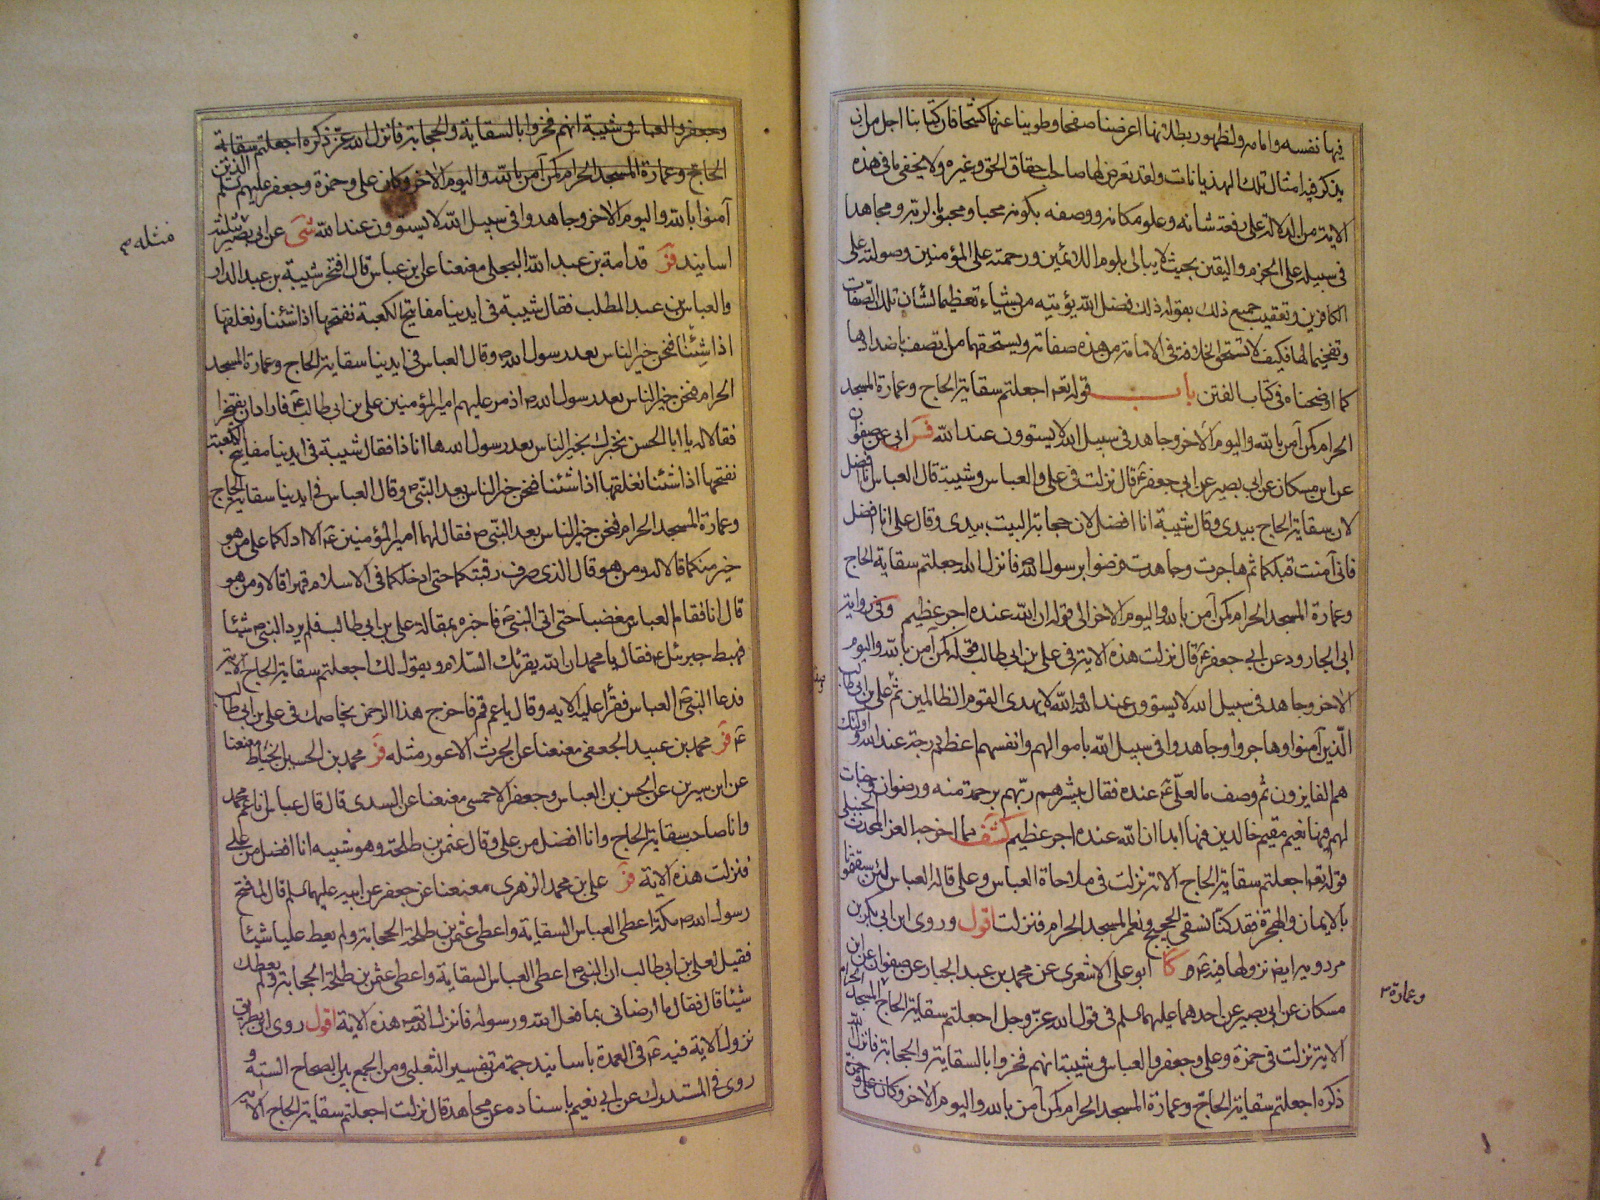 فيها نفسه وامامه ولظهور بطلانها اعرضنا صفحا وطوينا عنها كشحا فان كتابنا اجل من ان
يذكر فيه امثال تلك الهذيانات ولقد تعرض لها صاحب احقاق الحق وغيره ولا يخفى ما فى هذه
الاية من الدلالة على رفعة شانه وعلو مكانه ووصفه بكونه محبا ومحبوبا لربه ومجاهدا
فى سبيله على الجزم واليقين بحيث لا يبالى بلوم اللائمين ورحمته على المؤمنين وصولته على
الكافرين وتعقيب جميع ذلك بقوله ذلك فضل الله يؤتيه من يشاء تعظيما لشان تلك الصفات
وتفخيما لها فكيف لا يستحق الخلافة والامامة من هذه صفاته ويستحقهما من اتصف باضدادها
كما اوضحناه فى كتاب الفتن باب قوله تعه اجعلتم سقاية الحاج وعمارة المسجد
الحرام كمن آمن بالله واليوم الاخر وجاهد فى سبيل الله لا يستوون عند الله فر ابى عن صفوان
عن ابن مسكان عن ابى بصير عن ابى جعفر ع قال نزلت فى على والعباس وشيبة قال العباس انا افضل
لان سقاية الحاج بيدى وقال شيبة انا افضل لان حجابة البيت بيدى وقال على انا افضل
فانى آمنت قبلكما ثم هاجرت وجاهدت فرضوا برسول الله ص فانزل الله اجعلتم سقاية الحاج
وعمارة المسجد الحرام كمن آمن بالله واليوم الاخر الى قوله ان الله عنده اجر عظيم وفى رواية
ابى الجارود عن ابى جعفر ع قال نزلت هذه الاية فى على بن ابى طالب قوله كمن آمن بالله واليوم
الاخر وجاهد فى سبيل الله لا يستوون عند الله والله لا يهدى القوم الظالمين ثم على بن ابى طالب
الذين آمنوا وهاجروا وجاهدوا فى سبيل الله باموالهم وانفسهم اعظم درجة عند الله واولئك
هم الفايزون ثم وصف ما لعلى ع عنده فقال يبشرهم ربهم برحمة منه ورضوان وجنات
لهم فيها نعيم مقيم خالدين فيها ابدا ان الله عنده اجر عظيم كشف مما اخرجه العز المحدث الحنبلى
قوله تعه اجعلتم سقاية الحاج الاية نزلت فى ملاحاة العباس وعلى قال له العباس لئن سبقتمونا
بالايمان والهجرة فقد كنا نسقى الحجيج ونعمر المسجد الحرام فنزلت اقول وروى ابن ابى بكر بن
مردويه ايضا نزولها فيه ع كا ابو على الاشعرى عن محمد بن عبد الجبار عن صفوان عن ابن
مسكان عن ابى بصير عن احدهما عليهما السلم فى قول الله عز وجل اجعلتم سقاية الحاج المسجد الحرام
وعمارة
الاية نزلت فى حمزة وعلى وجعفر والعباس وشيبة انهم فخروا بالسقاية والحجابة فانزل الله
ذكره اجعلتم سقاية الحاج وعمارة المسجد الحرام كمن آمن بالله واليوم الاخر وكان على وحمزة
وجعفر والعباس وشيبة انهم فخروا بالسقاية والحجابة فانزل الله عز ذكره اجعلتم سقاية
الحاج وعمارة المسجد الحرام كمن آمن بالله واليوم الاخر وكان على وحمزة وجعفر عليهم السلم الذين
آمنوا بالله واليوم الاخر وجاهدوا فى سبيل الله لا يستوون عند الله شى عن ابى بصير بثلث
مثله
اسانيد فر قدامة بن عبد الله البجلى معنعنا عن ابن عباس قال افتخر شيبة بن عبد الدار
والعباس بن عبد المطلب فقال شيبة فى ايدينا مفاتيح الكعبة نفتحها اذا شئنا ونغلقها
اذا شئنا فنحن خير الناس بعد رسول الله وقال العباس فى ايدينا سقاية الحاج وعمارة المسجد
الحرام فنحن خير الناس بعد رسول الله اذ مر عليهم امير المؤمنين على بن ابى طالب ع فارادا ان يفتخرا
فقالا له يا ابا الحسن نخبرك بخير الناس بعد رسول الله ها انا ذا فقال شيبة فى ايدينا مفاتيح الكعبة
نفتحها اذا شئنا نغلقها اذا شئنا فنحن خير الناس بعد النبى ص وقال العباس فى ايدينا سقاية الحاج
وعمارة المسجد الحرام فنحن خير الناس بعد النبى ص فقال لهما امير المؤمنين ع الا ادلكما على من هو
خير منكما قالا له ومن هو قال الذى صرف رقبتكما حتى ادخلكما فى الاسلام قهرا قالا ومن هو
قال انا فقام العباس مغضبا حتى اتى النبى ص فاخبره بمقالة على بن ابى طالب فلم يرد النبى ص شيئا
فهبط جبرئيل ع فقال يا محمد ان الله يقرئك السلام ويقول لك اجعلتم سقاية الحاج الاية
فدعا النبى ص العباس فقرأ عليه الاية وقال يا عم قم فاخرج هذا الرحمن يخاصمك فى على بن ابى طالب
ع فر محمد بن عبيد الجعفى معنعنا عن الحرث الاعور مثله فر محمد بن الحسين الخياط معنعنا
عن ابن سيرين عن الحسن بن العباس وجعفر الاحمسى معنعنا عن السدى قال قال عباس انا عم محمد
وانا صاحب سقاية الحاج وانا افضل من على وقال عثمن بن طلحة وهو شيبه انا افضل من على
فنزلت هذه الاية فر على بن محمد الزهرى معنعنا عن جعفر عن ابيه عليهما السلم قال لما فتح
رسول الله مكة اعطى العباس السقاية واعطى عثمن بن طلحة الحجابة ولم يعط عليا شيئا
فقيل لعلى بن ابى طالب ان النبى ص اعطى العباس السقاية واعطى عثمن بن طلحة الحجابة ولم يعطك
شيئا قال فقال ما ارضانى بما فعل الله ورسوله فانزل الله تعه هذه الاية اقول روى ابن بطريق
نزول الاية فيه ع فى العمدة باسانيد جمة من تفسير الثعلبى ومن الجمع بين الصحاح الستة و
روى فى المستدرك عن ابى نعيم باسناده عن مجاهد قال نزلت اجعلتم سقاية الحاج الاية